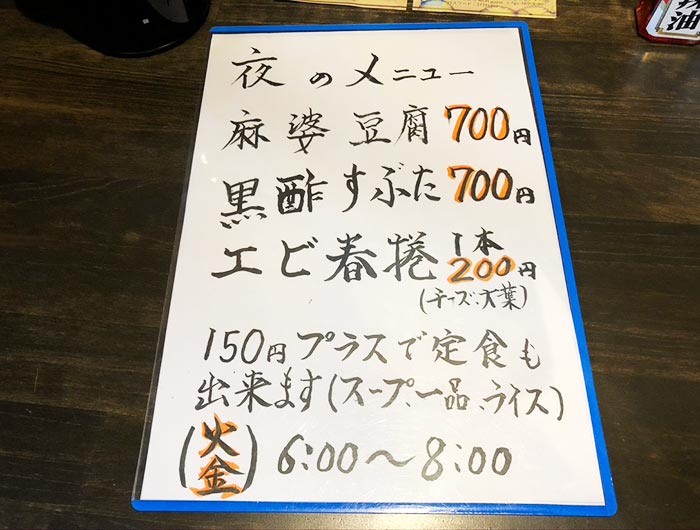 夜のメニュー
麻婆豆腐 700円
黒酢すぶた 700円
エビ春捲 1本 200円
(チーズ、大葉)
150円プラスで定食も
出来ます(スープ、一品、ライス)
(火金) 6:00〜8:00
油